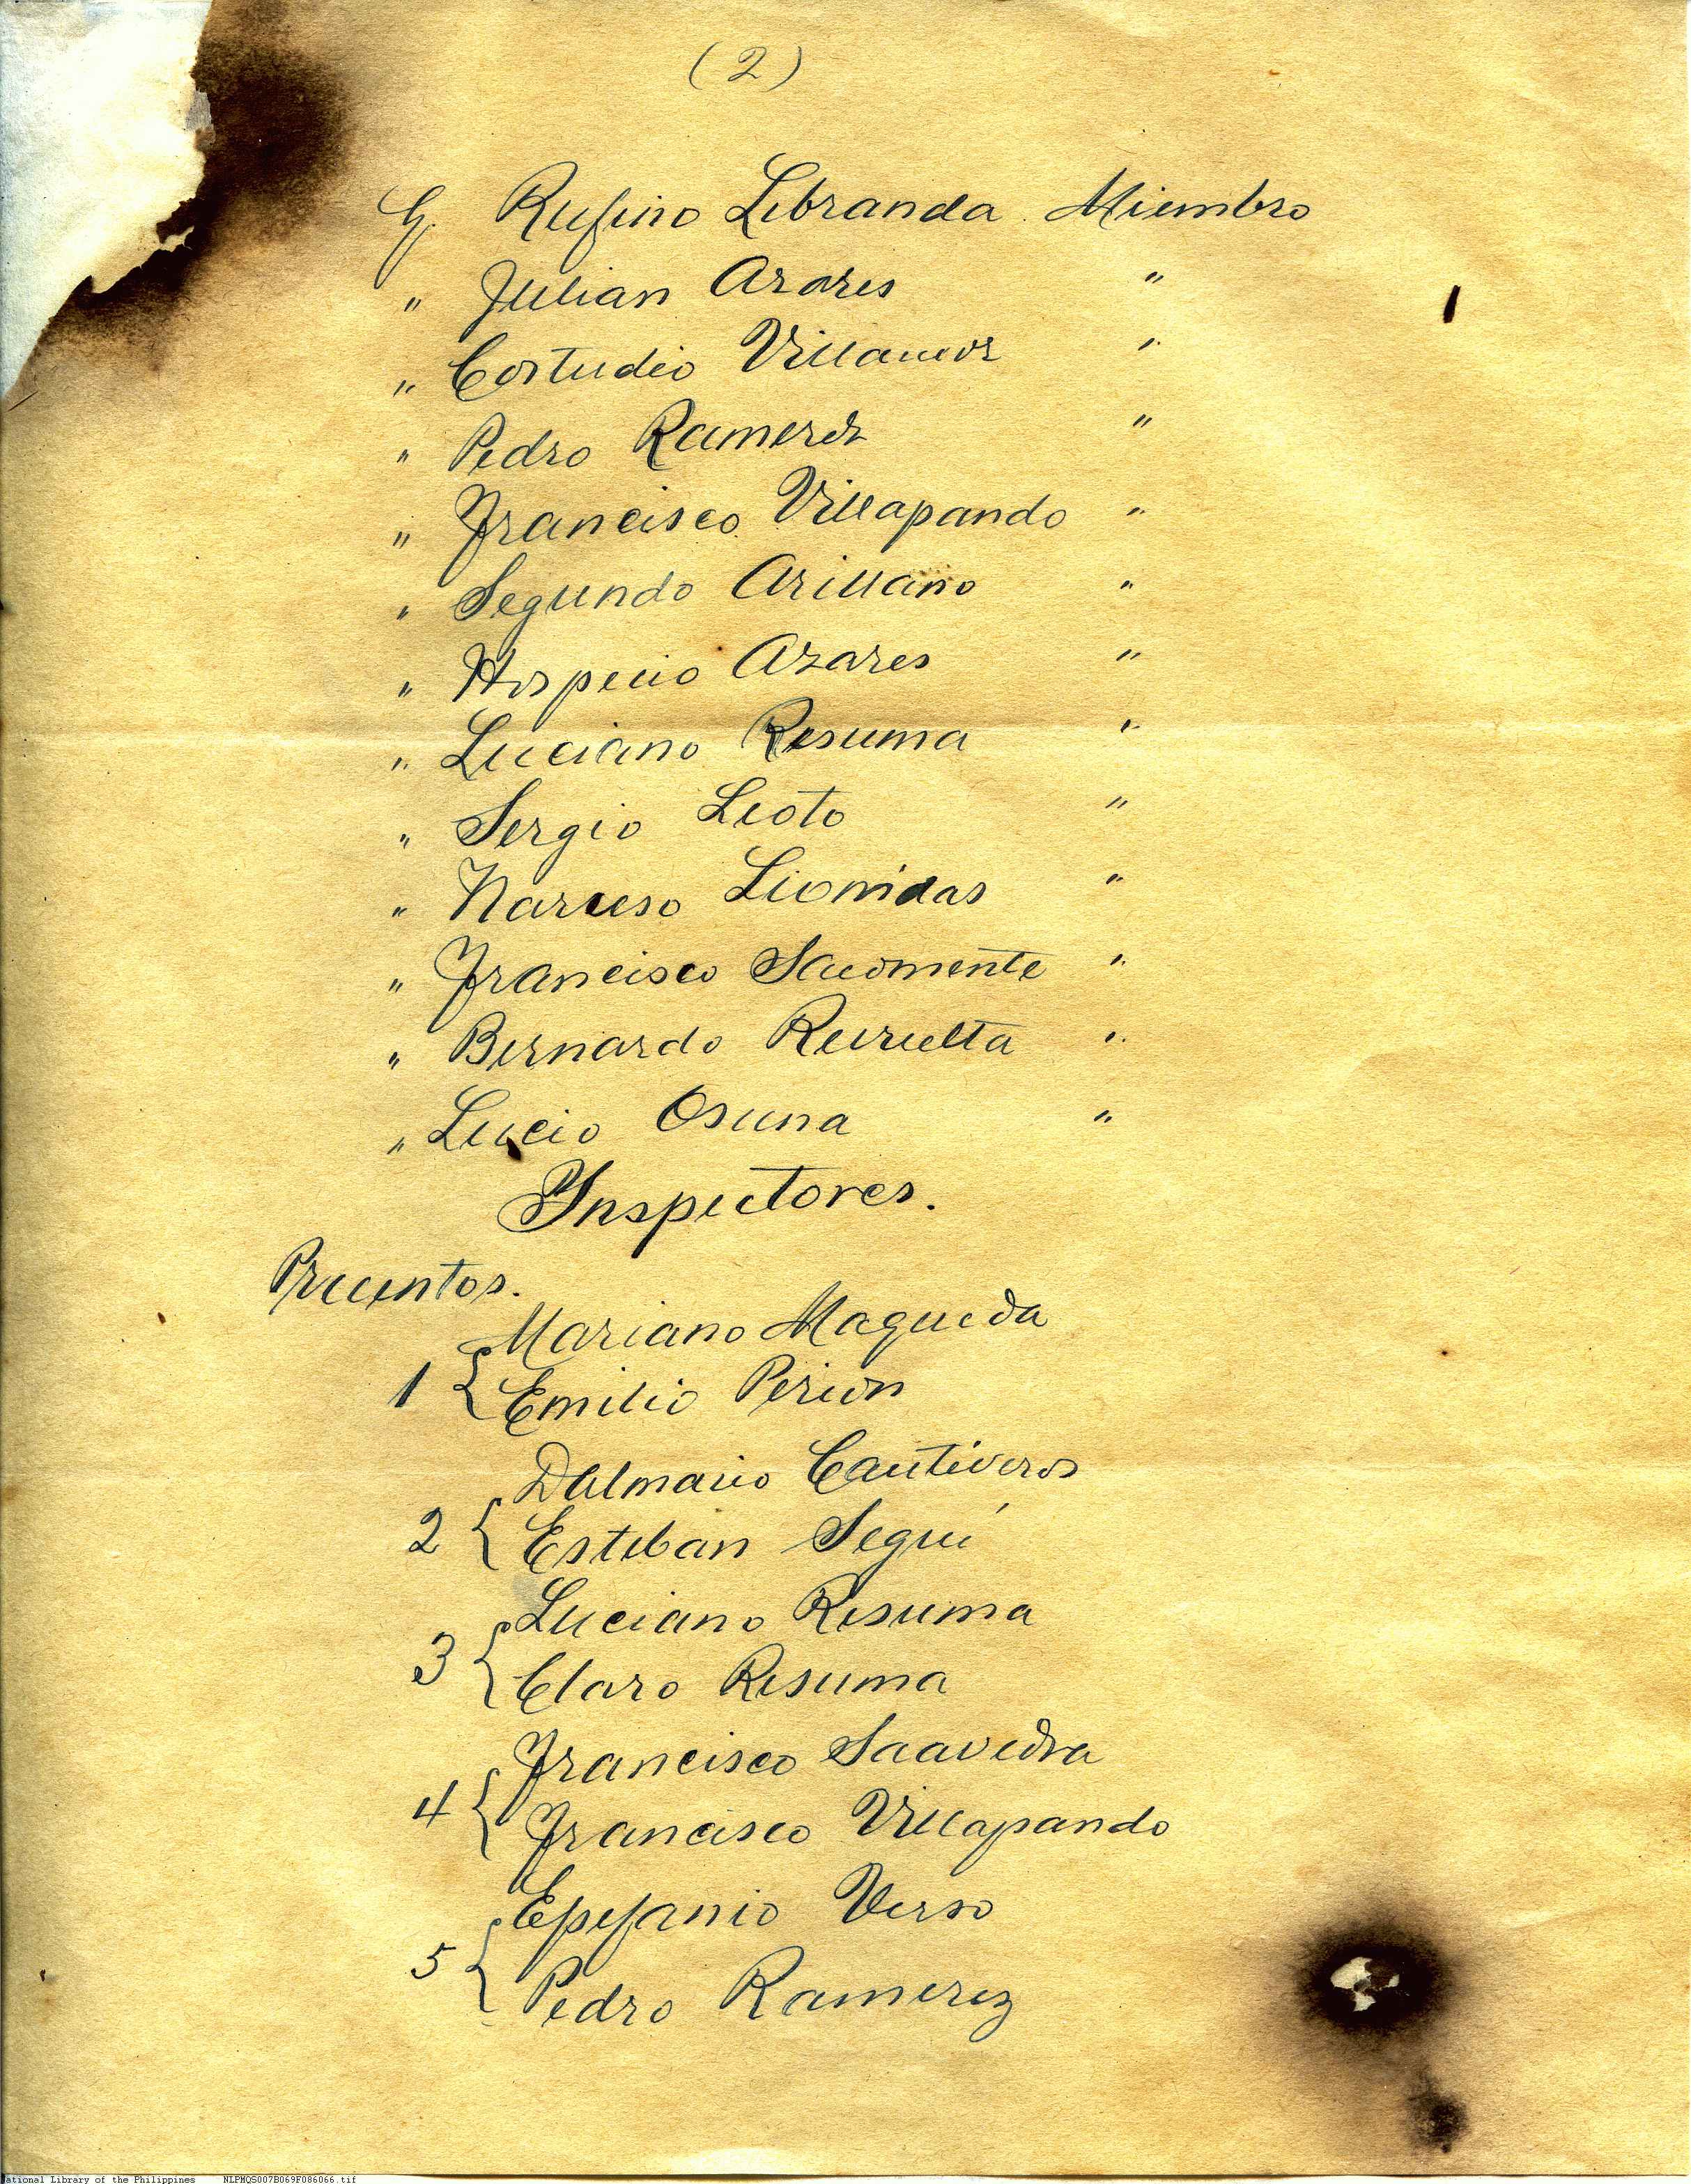 (2)
G. Rufino Libranda Miembro
" Julian Azares "
" Costudio Villamor "
" Pedro Ramerez "
" Francisco Villapando "
" Segundo Arillano "
" Hospicio Azares "
" Luciano Resuma "
" Sergio Leoto "
" Narciso Lionidas "
" Francisco Sacomente "
" Bernardo "
" Lucio Osuna "
Inspectores.
Precintos.
Mariano Maqueda
1 { Emilio Perion
Dalmacio Cantiveros
2 { Esteban Seguí
Luciano Resuma
3 { Claro Resuma
Francisco Saavedra
4 { Francisco Villapando
Epefanio Verso
5 { Pedro Ramerez
ational Library of the Philippines NLPMQS007B069F086066.tif